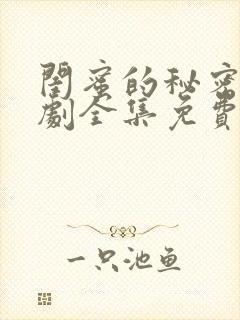 闺蜜的秘密
劇全集免費
一只池鱼